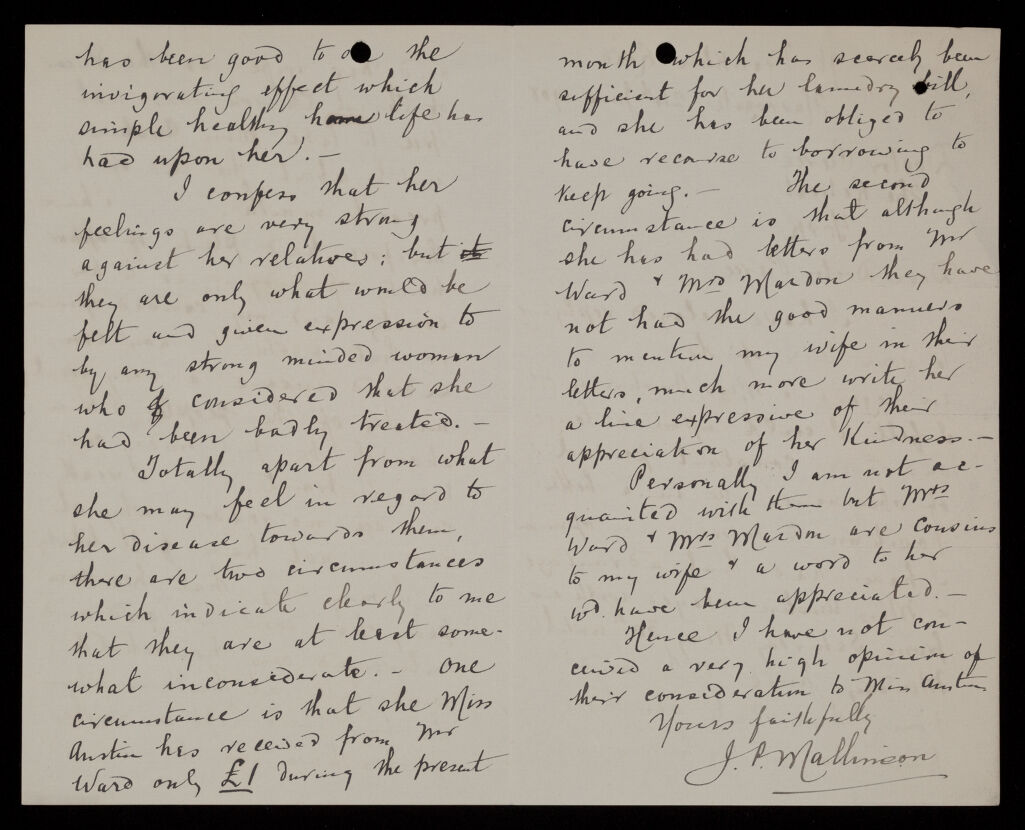 has been good to see the
invigorating effect which
simple healthy home life has
had upon her. —
I confess that her
feelings are very strong
against her relatives: but
they are only what would be
felt and given expression to
by any strong minded woman
who considered that she
had been badly treated. —
Totally apart from what
she may feel in regard to
her disease towards them,
there are two circumstances
which indicate clearly to me
that they are at least some-
what inconsiderate. — One
circumstance is that she Miss
Austin has received from Mr
Ward only £1 during the present
month which has scarcely been
sufficient for her laundry bill,
and she has been obliged to
have recourse to borrowing to
keep going. — The second
circumstance is that although
she has had letters from Mr
Ward & Mrs Mardon they have
not had the good manners
to mention my wife in their
letters, much more write her
a line expressive of their
appreciation of her kindness. —
Personally I am not ac-
quainted with them but Mrs
Ward & Mrs Mardon are cousins
to my wife & a word to her
wd. have been appreciated. —
Hence I have not con-
ceived a very high opinion of
their consideration to Miss Austin
Yours faithfully
J. P. Mallinson